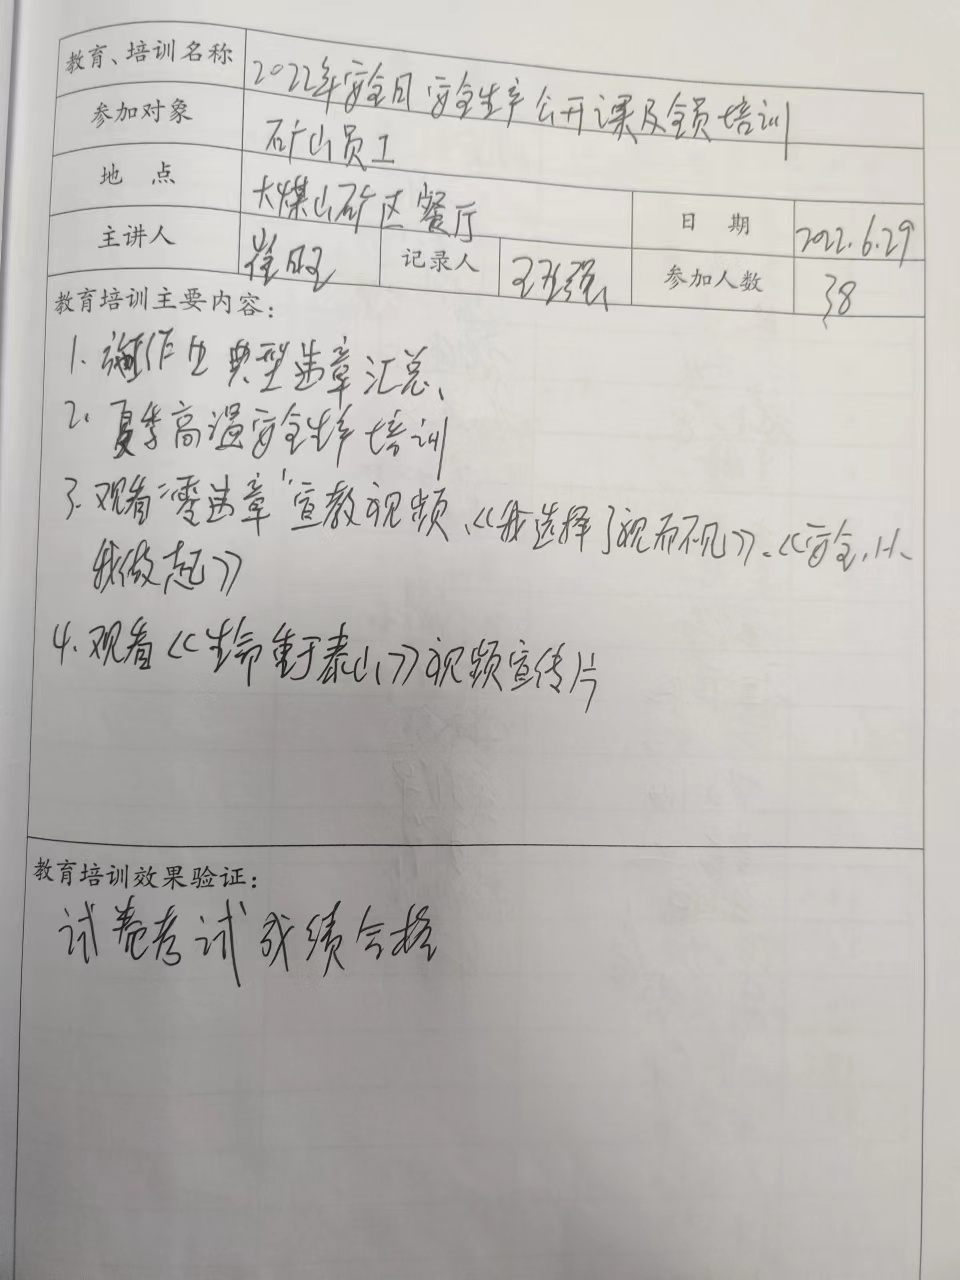 教育、培训名称 2022年安全月安全生产公开课及全员培训
参加对象 矿山员工
地 点 大煤山矿区餐厅 日 期 2022.6.29
主讲人 崔旺 记录人 王强 参加人数 38
教育培训主要内容：
1. 作业典型违章汇总、
2. 夏季高温安全生产培训
3. 观看"零违章"宣教视频、《我选择了视而不见》、《安全，从
我做起》
4. 观看《生命重于泰山》视频宣传片
教育培训效果验证：
试卷考试成绩合格